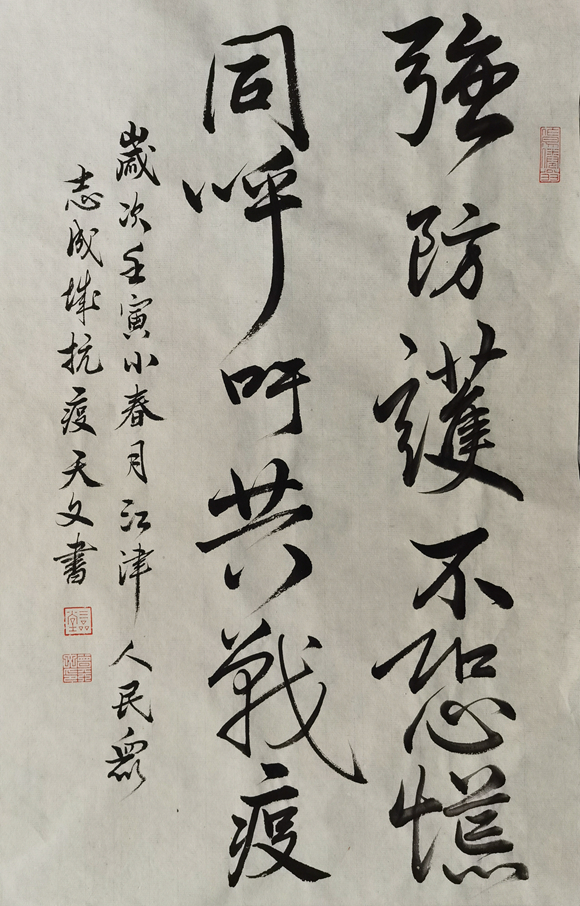 強防護不恐慌
同呼吁共戰疫
歲次壬寅小春月江津人民衆
志成城抗疫天文書